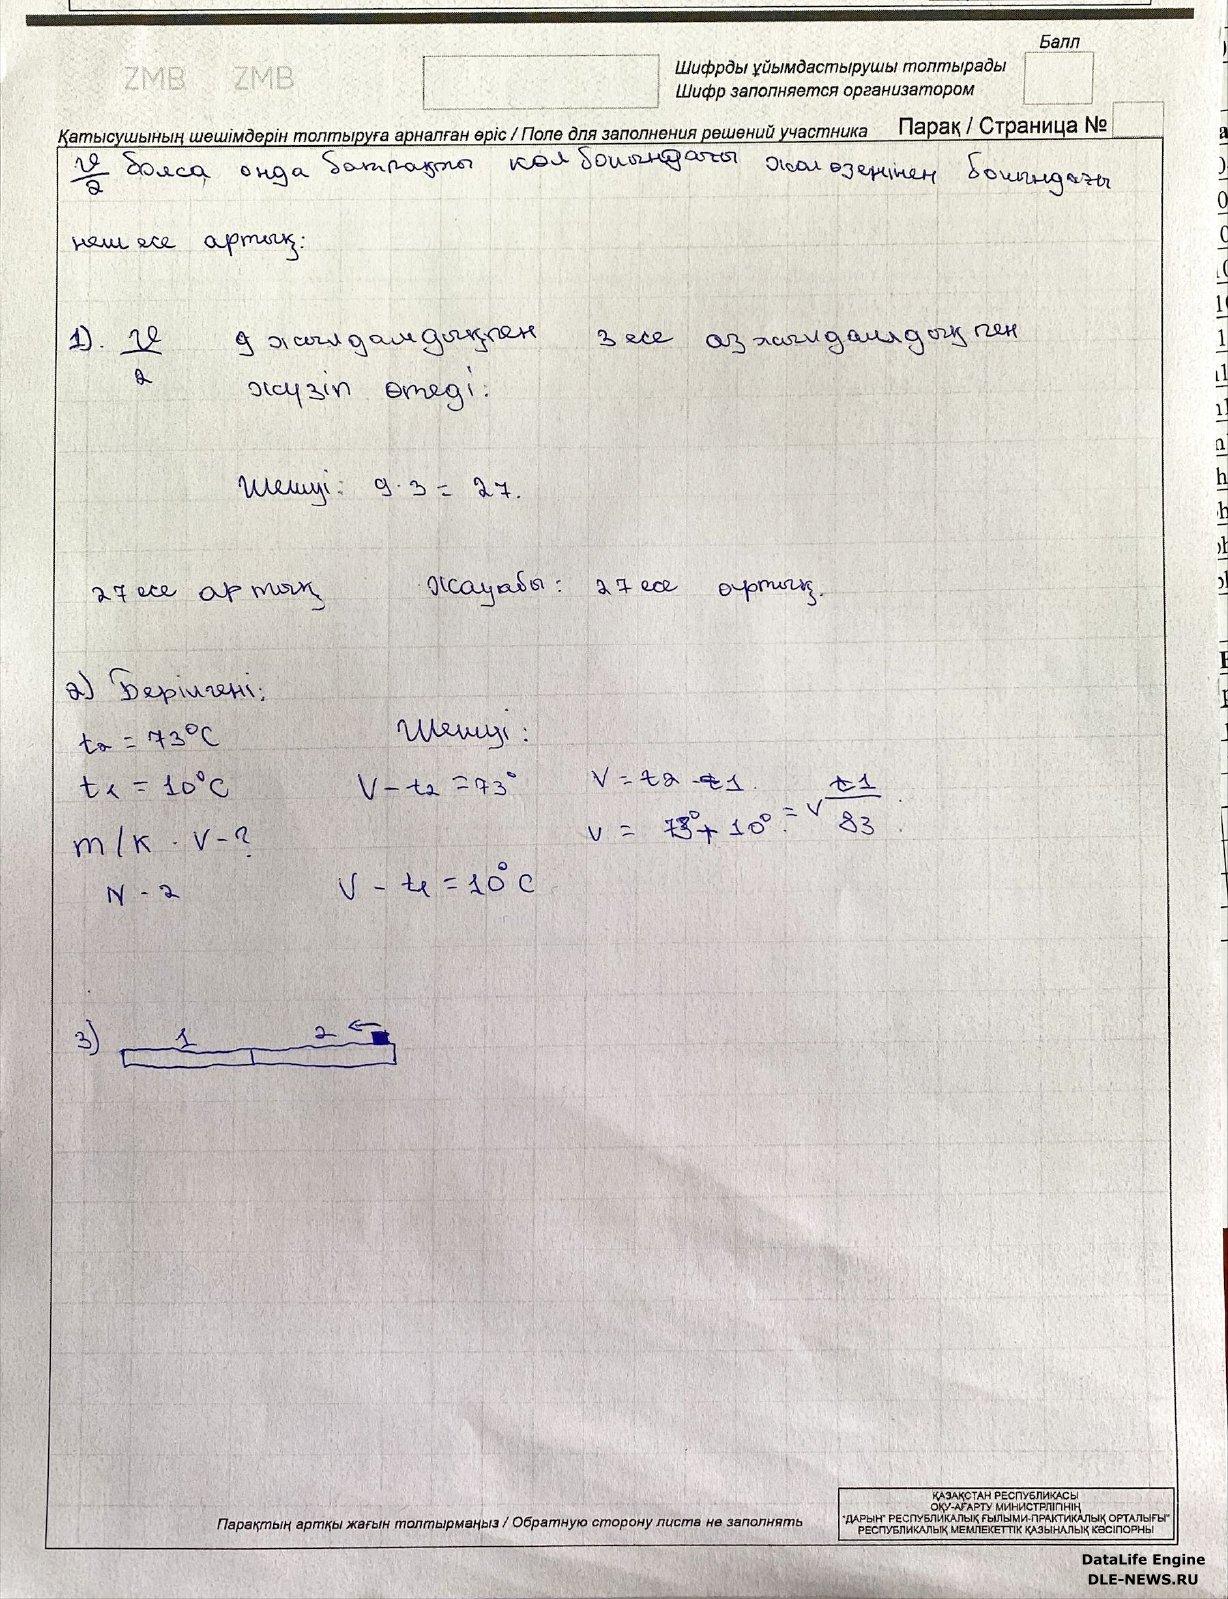 Балл
ZMB ZMB
Шифрды ұйымдастырушы толтырады
Шифр заполняется организатором
Қатысушының шешімдерін толтыруға арналған өріс / Поле для заполнения решений участника
Парақ / Страница №
v/2 болса, онда батпақты көл бойындағы жол өзенінен бойындағы
неш есе артық:
1). v/2 9 жылдамдықпен 3 есе аз жылдамдықпен
жүзіп өтеді:
Шешуі: 9·3 = 27.
27 есе артық Жауабы: 27 есе артық.
2) Берілгені:
t2 = 73°C Шешуі:
t1 = 10°C V – t2 = 73° V = t2 - t1
m/к · V – ? V = 73° + 10° = V t1/83
N - 2 V – t1 = 10°C
3) 1 2
Парақтың артқы жағын толтырмаңыз / Обратную сторону листа не заполнять
ҚАЗАҚСТАН РЕСПУБЛИКАСЫ
ОҚУ-АҒАРТУ МИНИСТРЛІГІНІҢ
"ДАРЫН" РЕСПУБЛИКАЛЫҚ ҒЫЛЫМИ-ПРАКТИКАЛЫҚ ОРТАЛЫҒЫ"
РЕСПУБЛИКАЛЫҚ МЕМЛЕКЕТТІК ҚАЗЫНАЛЫҚ КӘСІПОРНЫ
DataLife Engine
DLE-NEWS.RU